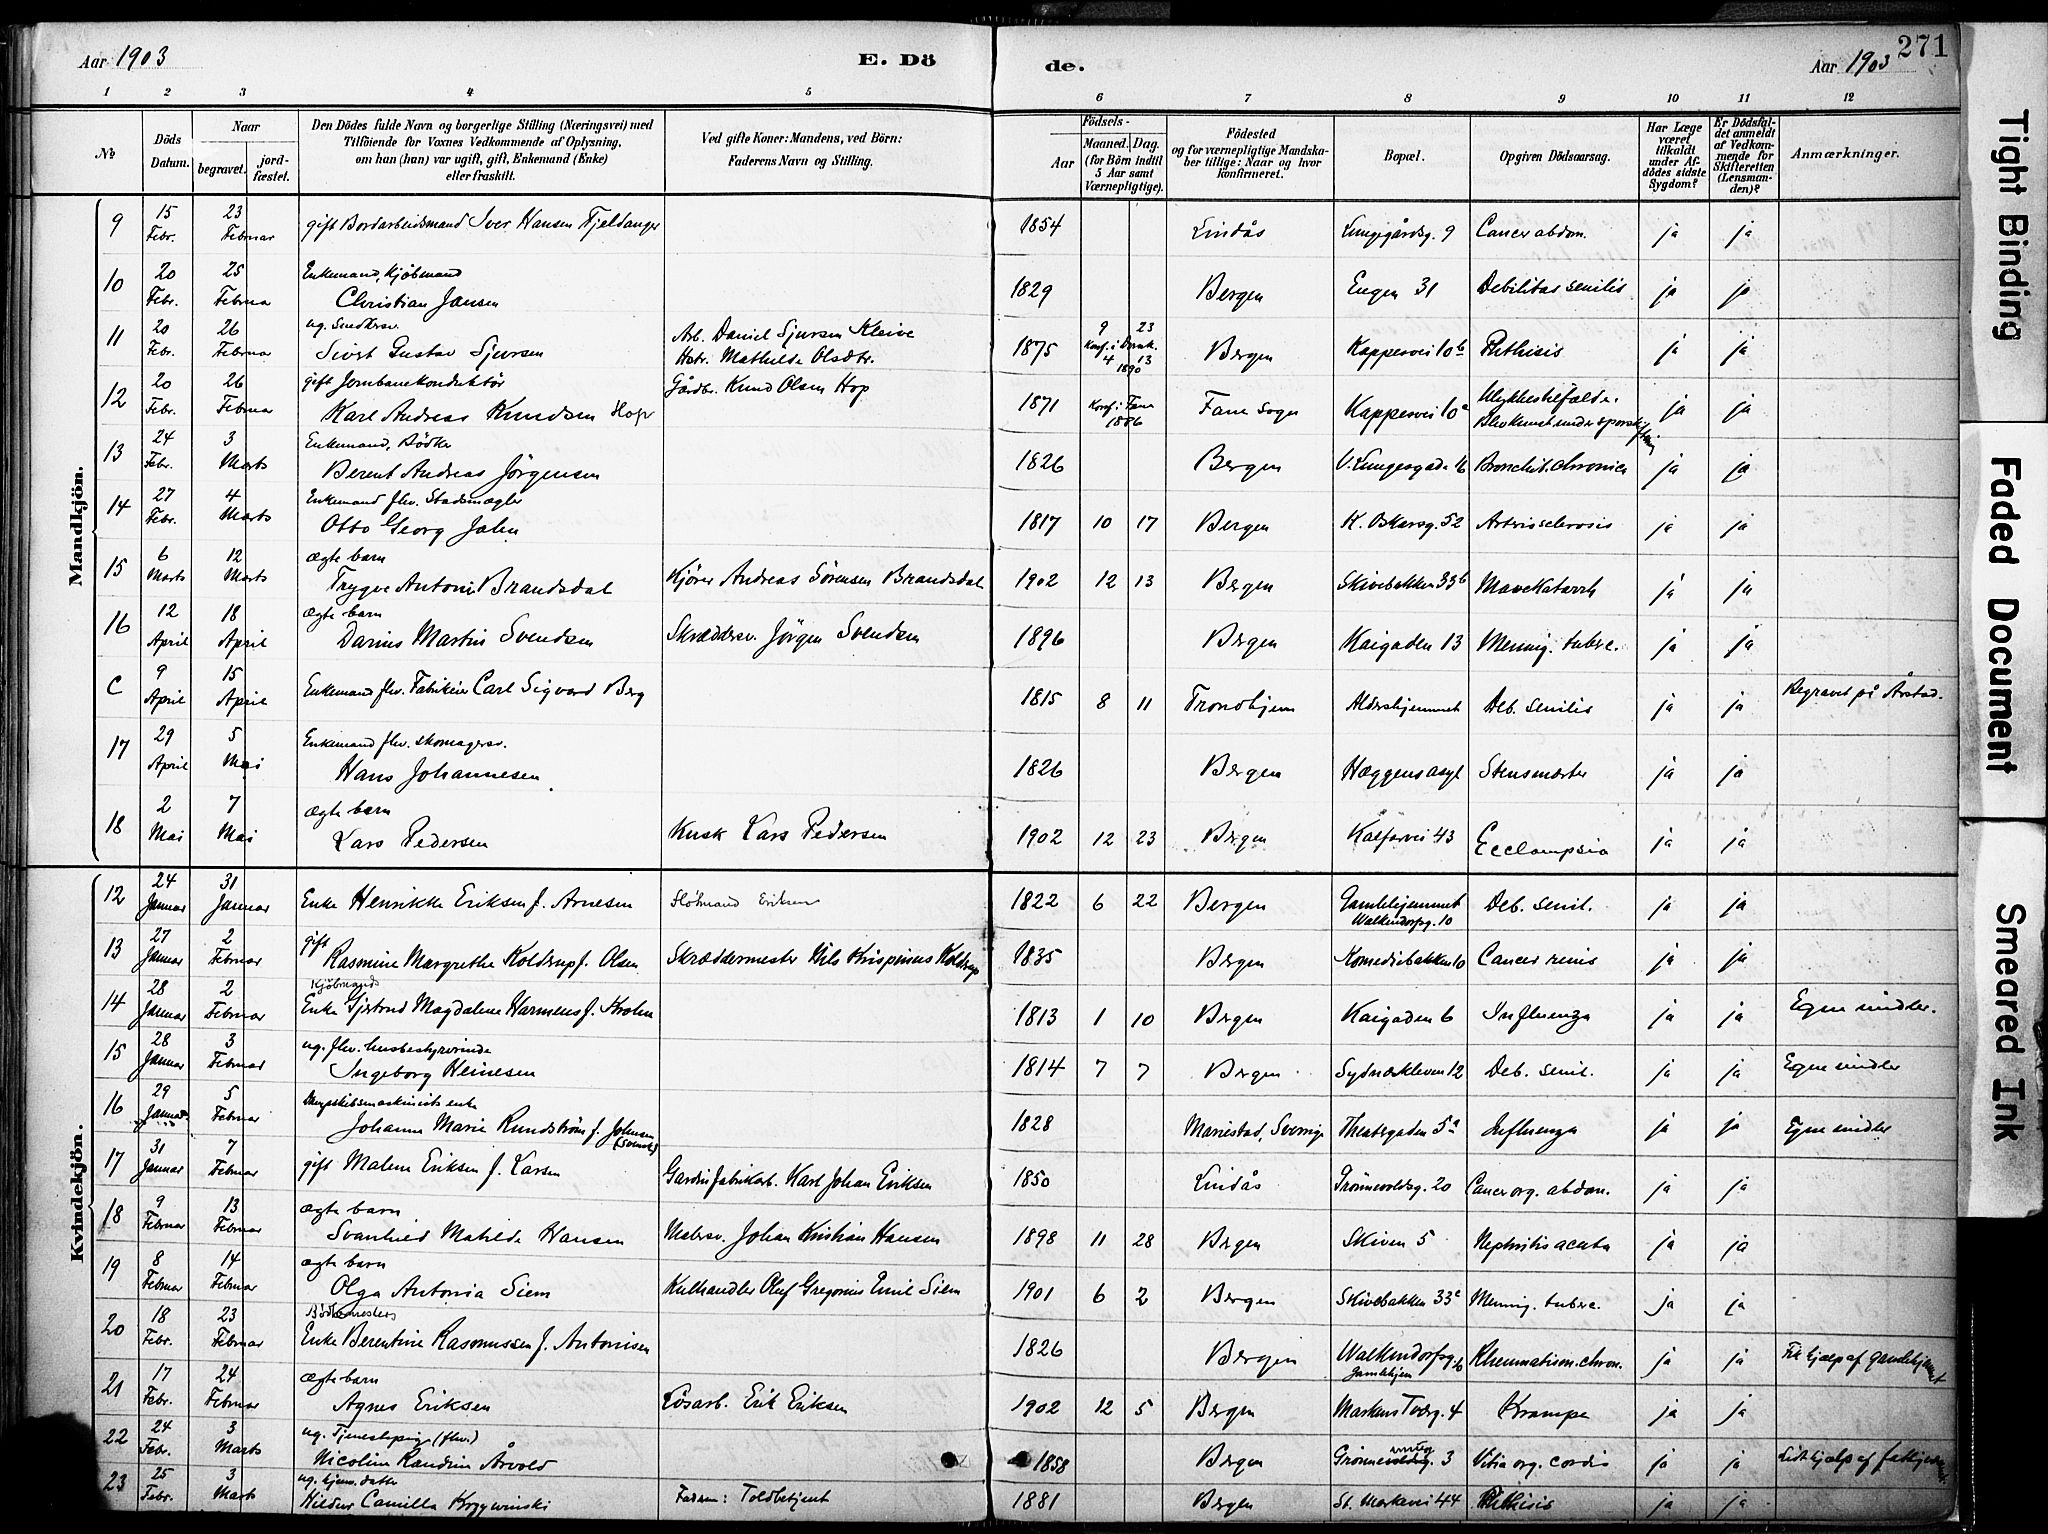 Aar 1903
E. Dö
de.
Aar 1903
271
1 2 3 4 5 6 7 8 9 10 11 12
No
Döds Datum.
Naar
begravet.
jordfæstet.
Den Dödes fulde Navn og borgerlige Stilling (Næringsvei) med
Tilföiende for Voxnes Vedkommende af Oplysning,
om han (hun) var ugift, gift, Enkemand (Enke)
eller fraskilt.
Ved gifte Koner: Mandens, ved Börn:
Faderens Navn og Stilling.
Födsels-
Aar
Maaned. Dag.
(for Börn indtil
5 Aar samt
Værnepligtige).
Födested
og for værnepligtige Mandska-
ber tillige: Naar og hvor
konfirmeret.
Bopæl.
Opgiven Dödsaarsag.
Har Læge
været
tilkaldt
under Af-
dödes sidste
Sygdom?
Er Dödsfal-
det anmeldt
af Vedkom-
mende for
Skifteretten
(Lensman-
den)?
Anmærkninger.
Mandkjön.
9 15 Febr. 23 Februar gift Bordarbeidsmand Iver Hansen Fjeldanger 1854 Lindås Lungegårdsg. 9 Cancer abdom. ja ja
10 20 Febr. 25 Februa Enkemand, Kjöbmand
Christian Jansen 1829 Bergen Engen 31 Debilitas senilis ja ja
11 20 Febr. 26 Februar ug. Snedkersv.
Sivert Gustav Sjursen Arb. Daniel Sjursen Kleive
Hstr. Mathilde Olsdtr. 1875 9 23 Konf. i Domk. 4 13 1890 Bergen Kappesvei 10b Phthisis ja ja
12 20 Febr. 26 Februar gift Jernbanekonduktör
Karl Andreas Knudsen Hop Gårdbr. Knud Olsen Hop 1871 Konf. i Fane 1886 Fane Sogn Kappesvei 10a Ulykkestilfælde.
Blev klemt under sporskiftning ja ja
13 24 Febr. 3 Marts Enkemand, Bödker
Berent Andreas Jörgensen 1826 Bergen V. Lungesgade 16 Bronchit. chronica ja ja
14 27 Febr. 4 Marts Enkemand fhv. Stadsmægler
Otto Georg Jahn 1817 10 17 Bergen K. Oskarsg. 52 Arteriosclerosis ja ja
15 6 Marts 12 Marts ægte barn
Trygve Antoni Brandsdal Kjörer Andreas Sörensen Brandsdal 1902 12 13 Bergen Skivebakken 33b Mavekatarrh ja ja
16 12 April 18 April ægte barn
Darius Martin Svendsen Skræddersv. Jörgen Svendsen 1896 Bergen Kaigaden 13 Mening. tuberc. ja ja
C 9 April 15 April Enkemand fhv. Fabrikeier Carl Sigvard Berg 1815 8 11 Trondhjem Aldershjemmet Deb. senilis ja ja Begravet på Årstad.
17 29 April 5 Mai Enkemand fhv. skomagersv.
Hans Johannesen 1826 Bergen Hæggens asyl Stensmerter ja ja
18 2 Mai 7 Mai ægte barn
Lars Pedersen Kusk Lars Pedersen 1902 12 23 Bergen Kalfarvei 43 Ecclampsia ja ja
Kvindekjön.
12 24 Januar 31 Januar Enke Henrikke Eriksen f. Arnesen Slöimand Eriksen 1822 6 22 Bergen Gamlehjemmet
Walkendorfsg. 10 Deb. senil. ja ja
13 27 Januar 2 Februar gift Rasmine Margrethe Koldrup f. Olsen Skræddermester Nils Krispinus Koldrup 1835 Bergen Komediebakken 10 Cancer renis ja ja
14 28 Januar 2 Februar Kjöbmands
Enke Gjertrud Magdalene Harmens f. Krohn 1813 1 10 Bergen Kaigaden 6 Influenza ja ja Egne midler.
15 28 Januar 3 Februar ug. fhv. husbestyrerinde
Ingeborg Heinesen 1814 7 7 Bergen Sydneskleven 12 Deb. senil. ja ja Egne midler
16 29 Januar 5 Februar Dampskibsmaskinists enke
Johanne Marie Rundström f. Johnsen
(svensk) 1828 Mariestad, Sverige Theatergaden 5a Influenza ja ja Egne midler
17 31 Januar 7 Februar gift Malene Eriksen f. Larsen Gardinfabrikarb. Karl Johan Eriksen 1850 Lindås Grönnevoldsg. 20 Cancer org. abdom. ja ja
18 9 Februar 13 Februar ægte barn
Svanhild Matilde Hansen Malersv. Johan Kristian Hansen 1898 11 28 Bergen Skiven 5 Nephritis acuta ja ja
19 8 Februar 14 Februar ægte barn
Olga Antonia Siem Kulhandler Oluf Gregorius Emil Siem 1901 6 2 Bergen Skivebakken 33c Mening. tuberc. ja ja
20 18 Febr. 23 Februar Bödkermesters
Enke Berentine Rasmussen f. Antonisen 1826 Bergen Walkendorfsg. 10
Gamlehjem Rheumatism. chron. ja ja Fik hjælp af gamlehjemmet
21 17 Febr. 24 Februar ægte barn
Agnes Eriksen Lösarb. Erik Eriksen 1902 12 5 Bergen Markens Tverg. 4 Krampe ja ja
22 24 Febr. 3 Marts ug. Tjenestepige (fhv.)
Nicoline Randine Årvold 1858 Bergen Grönnevoldsg. 3 Vitia org. cordis ja ja Lidt hjælp af
23 25 Febr. 3 Marts ug. hjem. datter
Hildur Camilla Krzywinski Faren: Toldbetjent 1881 Bergen St. Markevei 44 Phthisis ja ja
Tight Binding
Faded Document
Smeared Ink